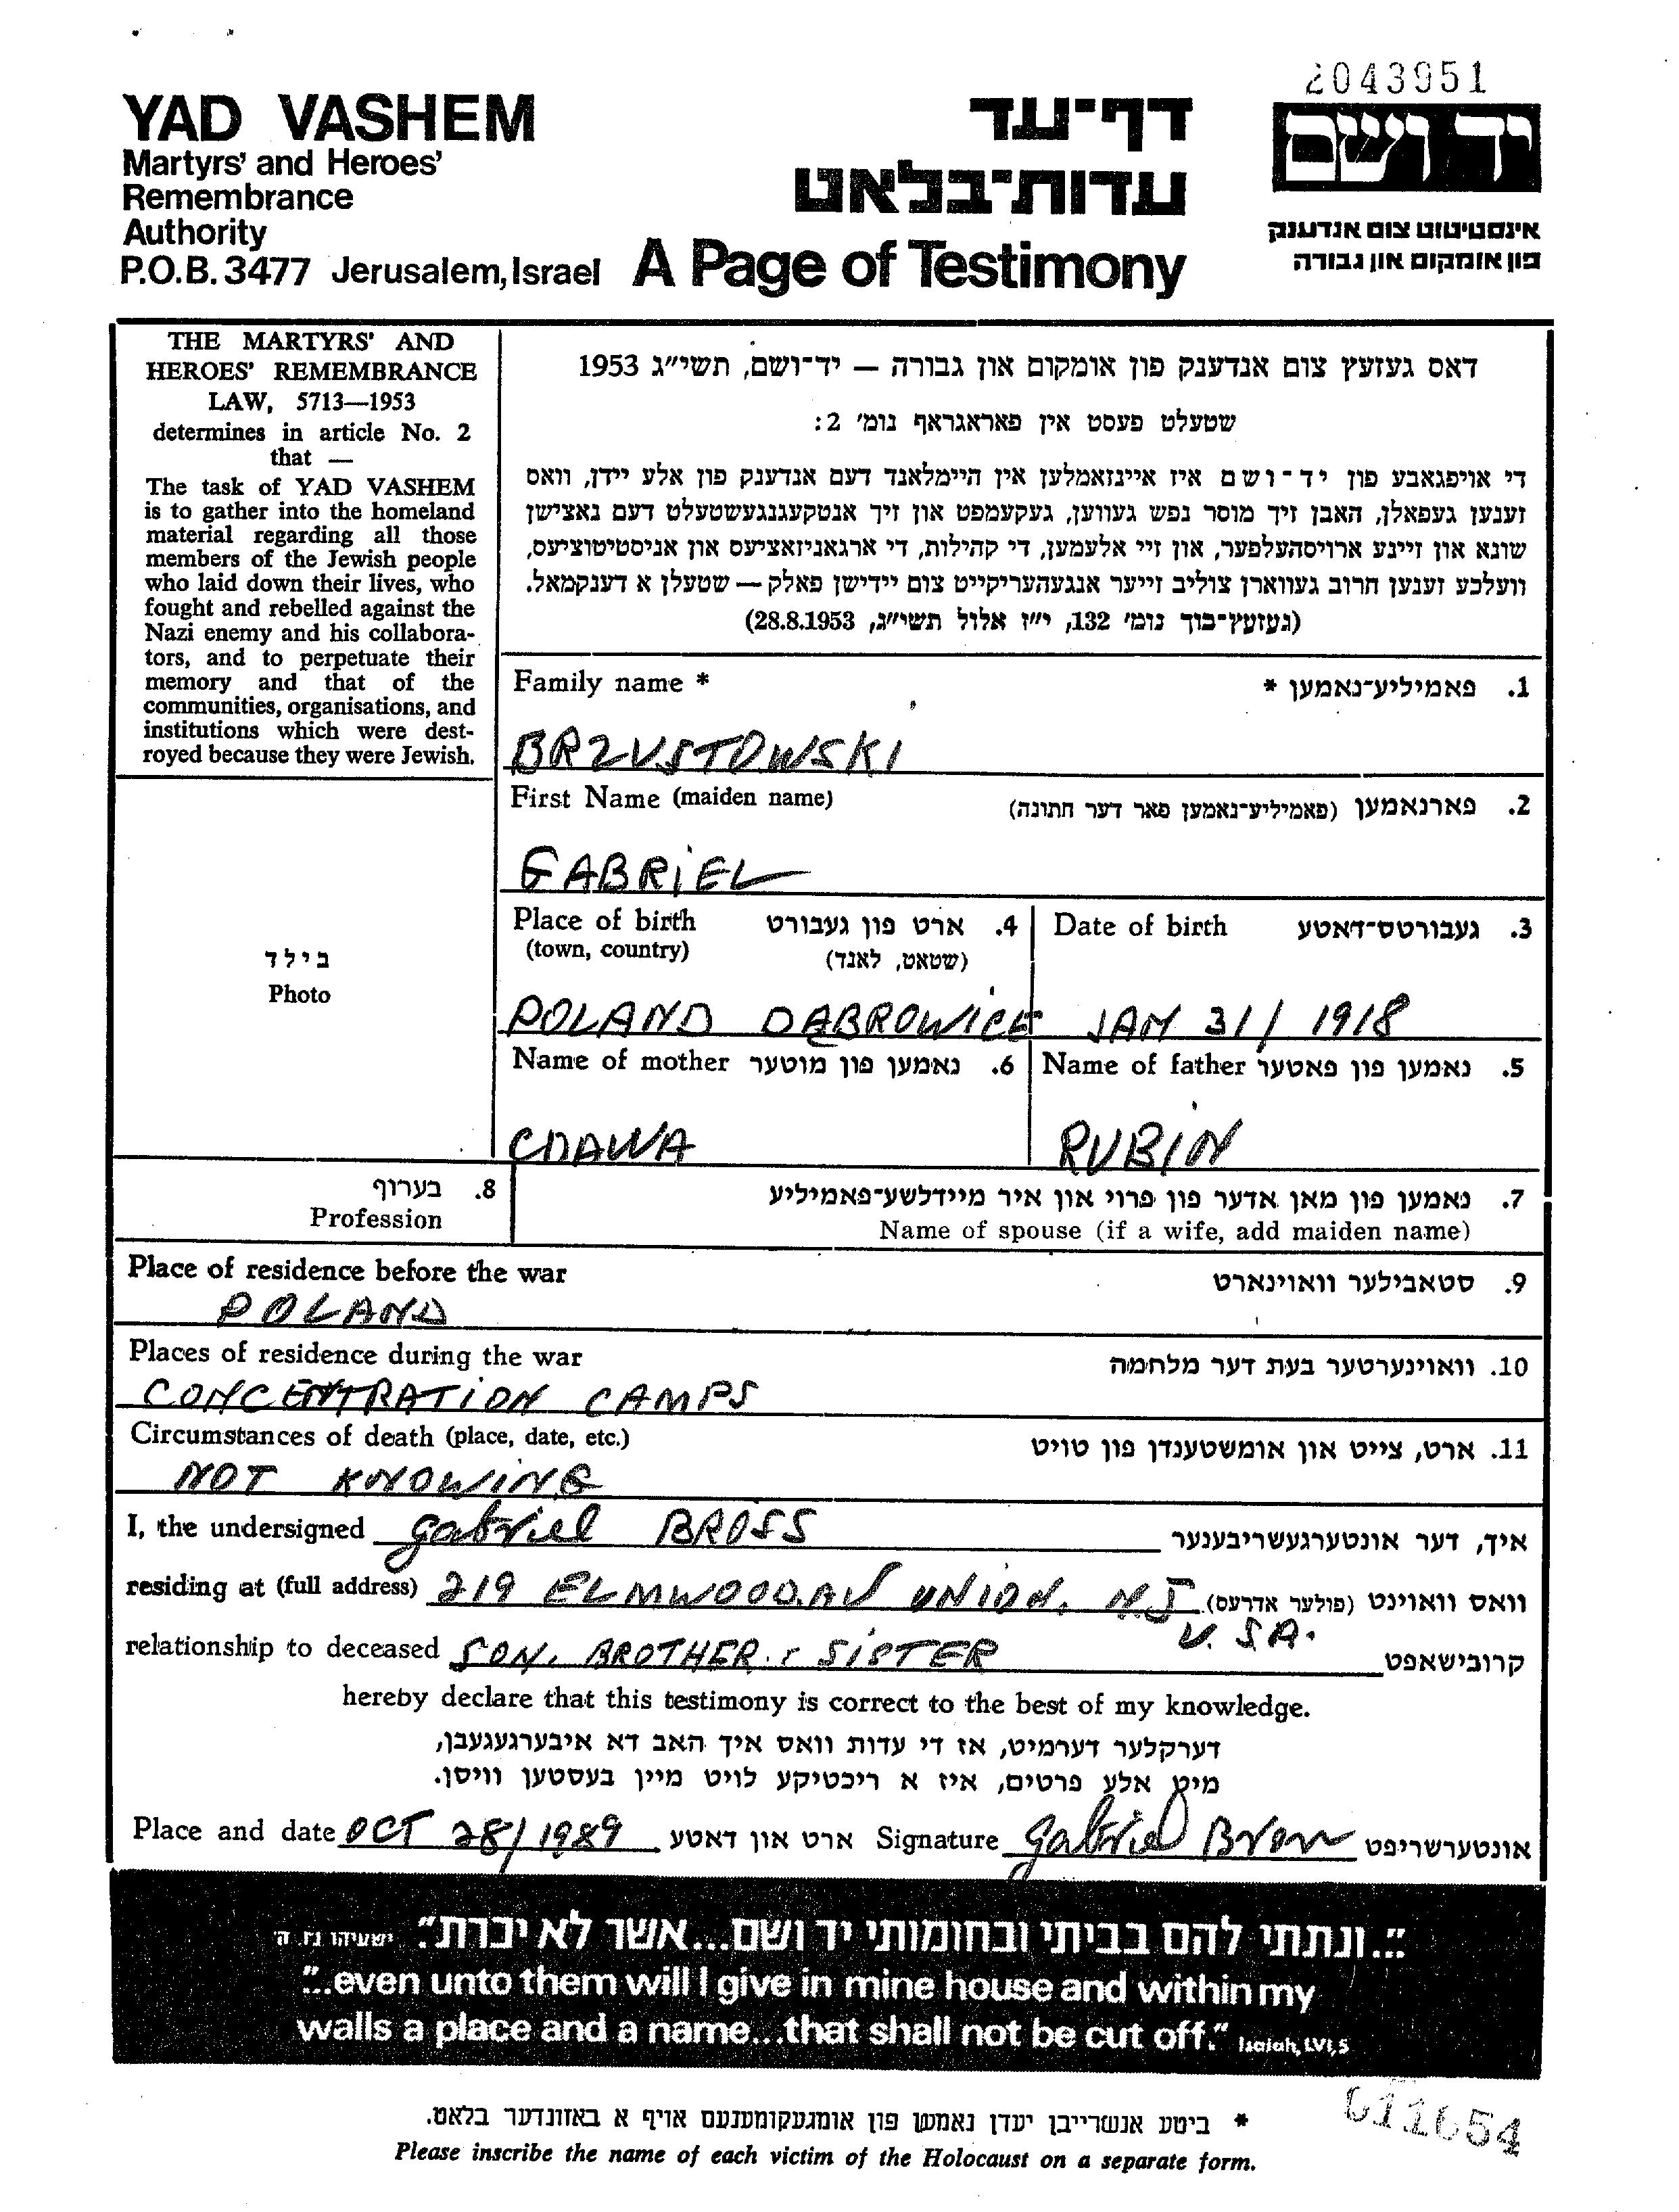 2043951
YAD VASHEM
Martyrs' and Heroes'
Remembrance
Authority
P.O.B. 3477 Jerusalem, Israel
דף-עד
עדות-בלאט
A Page of Testimony
יד ושם
אינסטיטוט צום אנדענק
פון אומקום און גבורה
THE MARTYRS' AND
HEROES' REMEMBRANCE
LAW, 5713—1953
determines in article No. 2
that —
The task of YAD VASHEM
is to gather into the homeland
material regarding all those
members of the Jewish people
who laid down their lives, who
fought and rebelled against the
Nazi enemy and his collabora-
tors, and to perpetuate their
memory and that of the
communities, organisations, and
institutions which were dest-
royed because they were Jewish.
דאס געזעץ צום אנדענק פון אומקום און גבורה — יד-ושם, תשי״ג 1953
שטעלט פעסט אין פאראגראף נומ׳ 2:
די אויפגאבע פון יד-ושם איז איינזאמלען אין היימלאנד דעם אנדענק פון אלע יידן, וואס
זענען געפאלן, האבן זיך מוסר נפש געווען, געקעמפט און זיך אנטקעגנגעשטעלט דעם נאצישן
שונא און זיינע ארויסהעלפער, און זיי אלעמען, די קהילות, די ארגאניזאציעס און אניסטיטוציעס,
וועלכע זענען חרוב געווארן צוליב זייער אנגעהעריקייט צום יידישן פאלק — שטעלן א דענקמאל.
(געזעץ-בוך נומ׳ 132, י״ז אלול תשי״ג, 28.8.1953)
Family name * פאמיליע-נאמען * .1
BRZUSTOWSKI
First Name (maiden name) פארנאמען (פאמיליע-נאמען פאר דער חתונה) .2
GABRIEL
בילד
Photo
Place of birth ארט פון געבורט .4
(town, country) (שטאט, לאנד)
POLAND DABROWICE
Date of birth געבורטס-דאטע .3
JAN 31/ 1918
Name of mother נאמען פון מוטער .6
CDAWA
Name of father נאמען פון פאטער .5
RUBIN
בערוף .8
Profession
נאמען פון מאן אדער פון פרוי און איר מיידלשע-פאמיליע .7
Name of spouse (if a wife, add maiden name)
Place of residence before the war סטאבילער וואוינארט .9
POLAND
Places of residence during the war וואוינערטער בעת דער מלחמה .10
CONCENTRATION CAMPS
Circumstances of death (place, date, etc.) ארט, צייט און אומשטענדן פון טויט .11
NOT KNOWING
I, the undersigned Gabriel BROSS איך, דער אונטערגעשריבענער
residing at (full address) 219 ELMWOOD.AV UNION. N.J וואס וואוינט (פולער אדרעס)
U.SA.
relationship to deceased SON. BROTHER. & SISTER קרובישאפט
hereby declare that this testimony is correct to the best of my knowledge.
דערקלער דערמיט, אז די עדות וואס איך האב דא איבערגעגעבן,
מיט אלע פרטים, איז א ריכטיקע לויט מיין בעסטען וויסן.
Place and date OCT 28/ 1989 ארט און דאטע Signature Gabriel Bross אונטערשריפט
"...ונתתי להם בביתי ובחומותי יד ושם...אשר לא יכרת." ישעיהו נו, ה
"...even unto them will I give in mine house and within my
walls a place and a name...that shall not be cut off." Isaiah, LVI, 5
* ביטע אנשרייבן יעדן נאמען פון אומגעקומענעם אויף א באזונדער בלאט.
Please inscribe the name of each victim of the Holocaust on a separate form.
011654